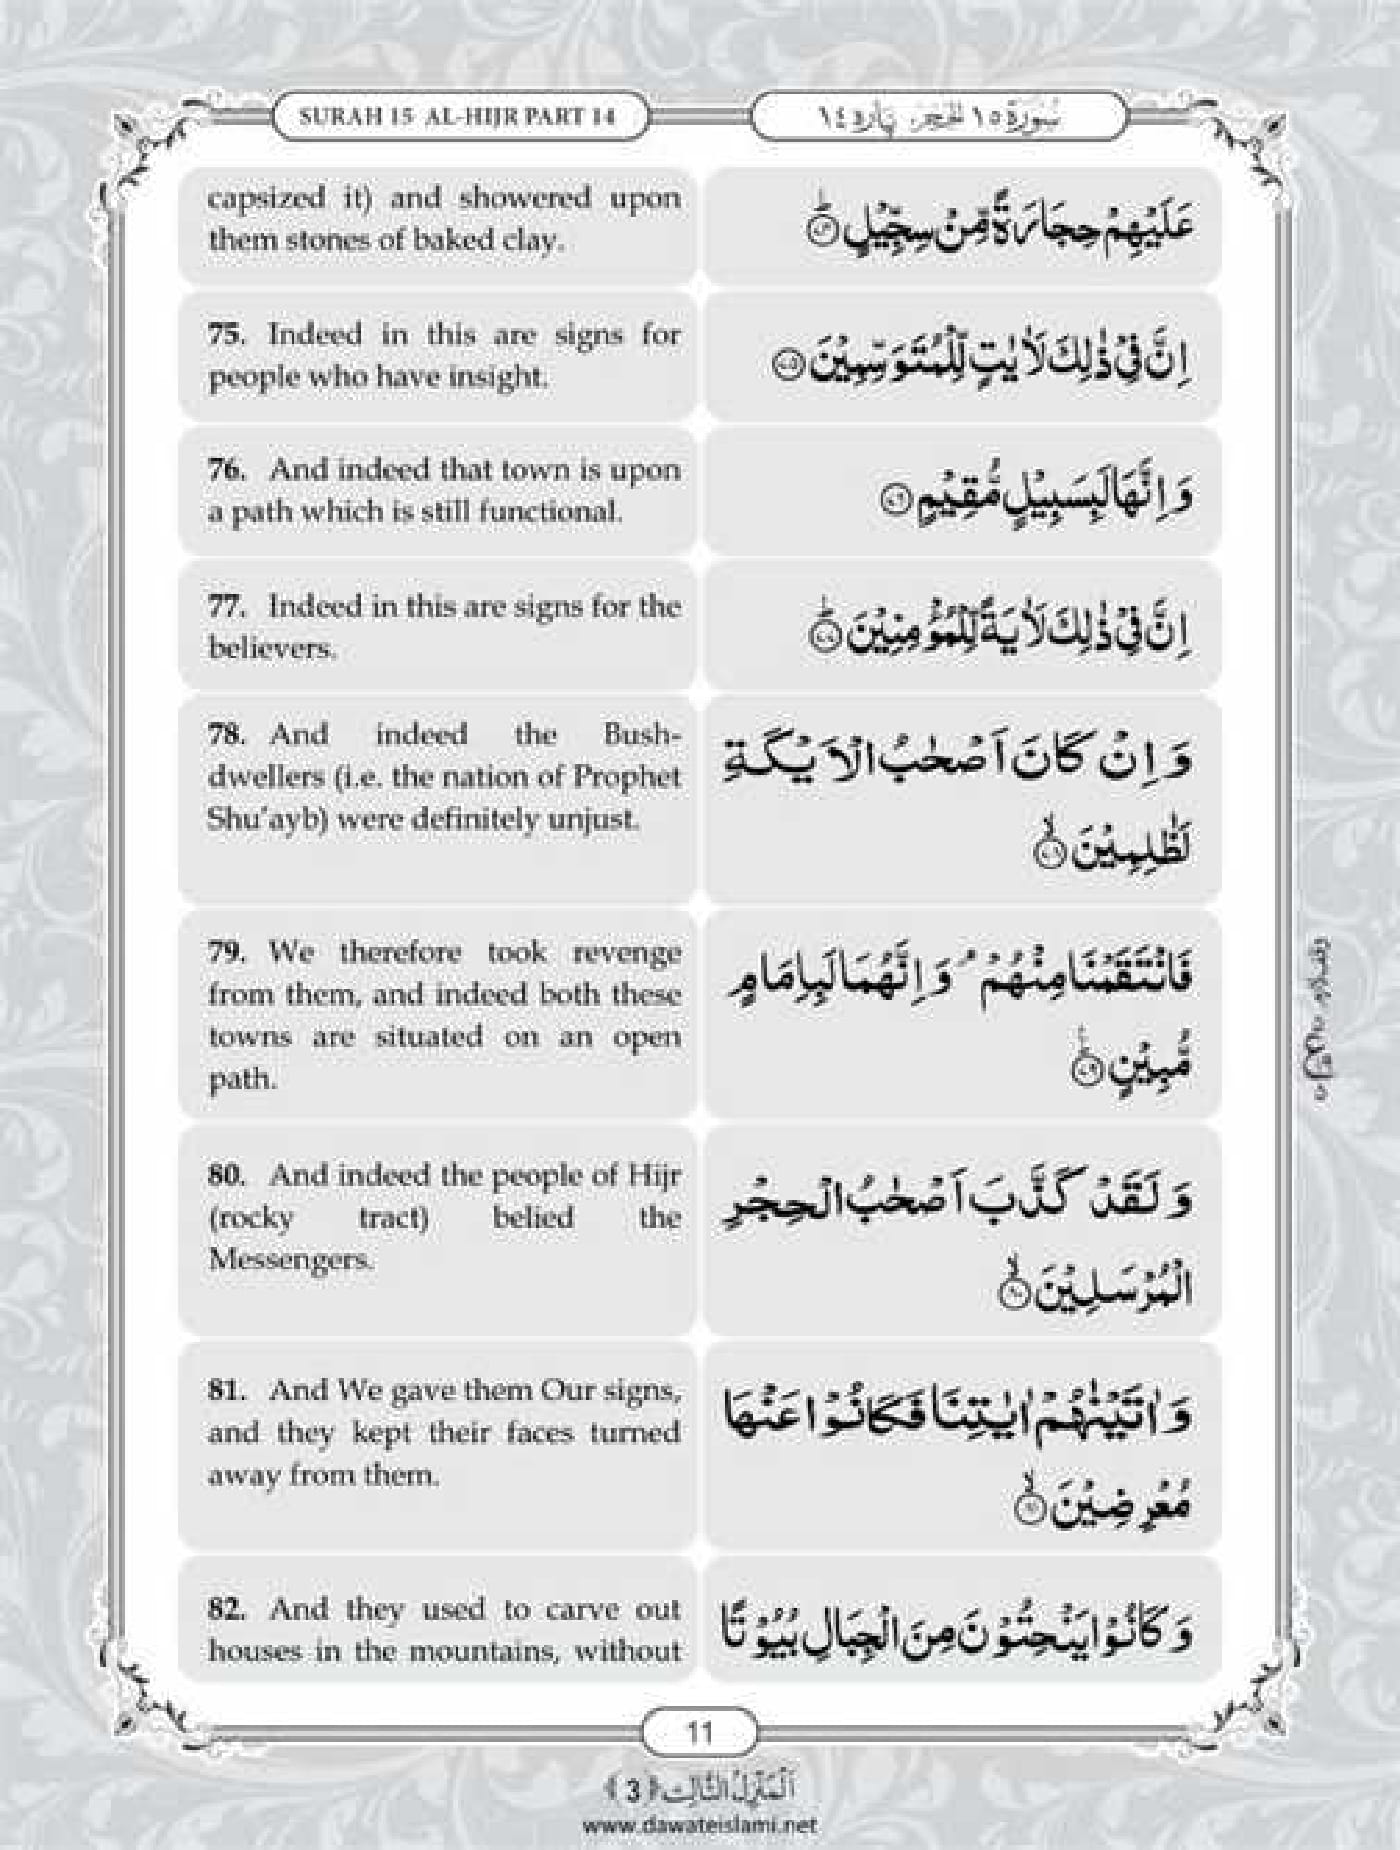 SURAH 15 AL-HIJR PART 14
سُوْرَةُ ١٥ الْحِجْر، پارہ ١٤
capsized it) and showered upon
them stones of baked clay.
عَلَيْهِمْ حِجَارَةً مِّنْ سِجِّيْلٍ ﴿۷۴﴾ؕ
75. Indeed in this are signs for
people who have insight.
اِنَّ فِيْ ذٰلِكَ لَاٰيٰتٍ لِّلْمُتَوَسِّمِيْنَ ﴿۷۵﴾
76. And indeed that town is upon
a path which is still functional.
وَ اِنَّهَا لَبِسَبِيْلٍ مُّقِيْمٍ ﴿۷۶﴾
77. Indeed in this are signs for the
believers.
اِنَّ فِيْ ذٰلِكَ لَاٰيَةً لِّلْمُؤْمِنِيْنَ ﴿۷۷﴾ؕ
78. And indeed the Bush-
dwellers (i.e. the nation of Prophet
Shu’ayb) were definitely unjust.
وَ اِنْ كَانَ اَصْحٰبُ الْاَيْكَةِ
لَظٰلِمِيْنَ ﴿۷۸﴾ۙ
79. We therefore took revenge
from them, and indeed both these
towns are situated on an open
path.
فَانْتَقَمْنَا مِنْهُمْ ۘ وَ اِنَّهُمَا لَبِاِمَامٍ
مُّبِيْنٍ ﴿۷۹﴾ؕ
80. And indeed the people of Hijr
(rocky tract) belied the
Messengers.
وَ لَقَدْ كَذَّبَ اَصْحٰبُ الْحِجْرِ
الْمُرْسَلِيْنَ ﴿۸۰﴾ۙ
81. And We gave them Our signs,
and they kept their faces turned
away from them.
وَ اٰتَيْنٰهُمْ اٰيٰتِنَا فَكَانُوْا عَنْهَا
مُعْرِضِيْنَ ﴿۸۱﴾ۙ
82. And they used to carve out
houses in the mountains, without
وَ كَانُوْا يَنْحِتُوْنَ مِنَ الْجِبَالِ بُيُوْتًا
11
اَلْمَنْزِلُ الثَّالِث ﴿3﴾
www.dawateislami.net